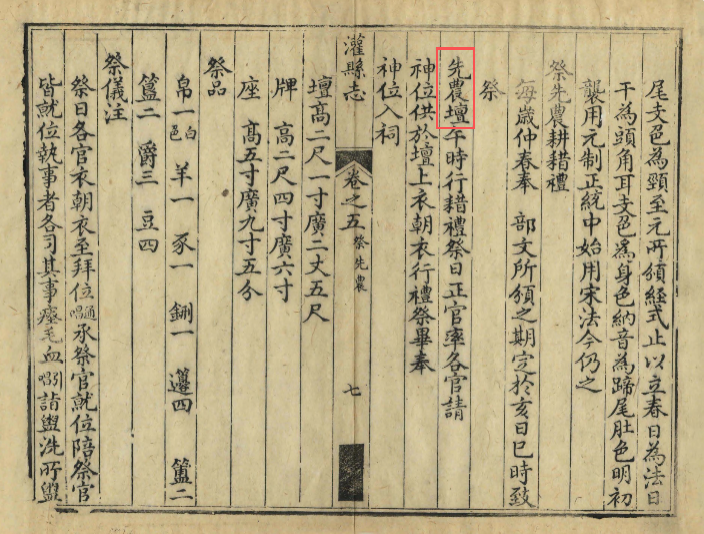 尾支色為頸至元所頒經式止以立春日為法日
干為頭角耳支色為身色納音為蹄尾肚色明初
襲用元制正統中始用宋法今仍之
祭先農耕耤禮
每歲仲春奉 部文所頒之期定於亥日巳時致
祭
先農壇午時行耤禮祭日正官率各官請
神位供於壇上衣朝衣行禮祭畢奉
神位入祠
灌縣志 卷之五 祭先農 七
壇高二尺一寸廣二丈五尺
牌 高二尺四寸廣六寸
座 高五寸廣九寸五分
祭品
帛一白色 羊一 豕一 鉶一 籩四 簠二
簋二 爵三 豆四
祭儀注
祭日各官衣朝衣至拜位通唱承祭官就位陪祭官
皆就位執事者各司其事瘞毛血 詣盥洗所盥